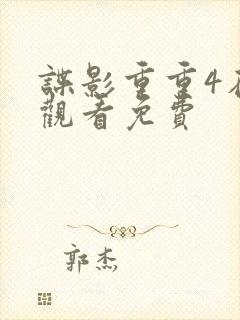 諜影重重4
觀看免費
郭杰